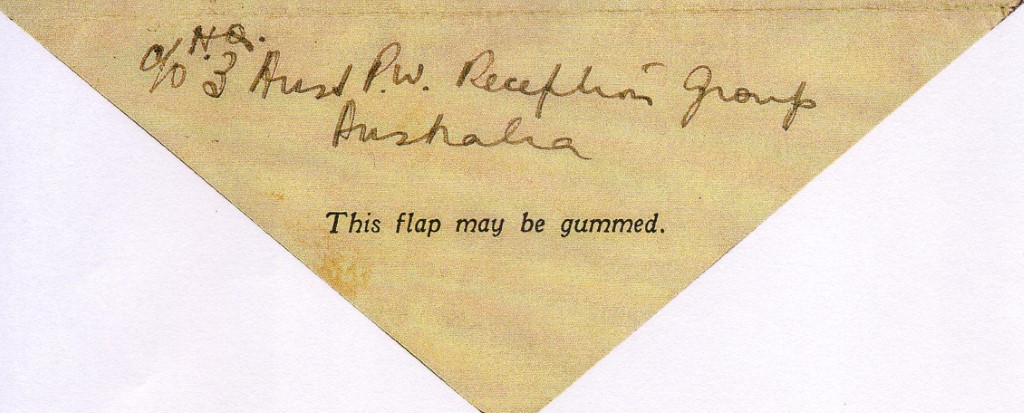 H.Q.
c/o 3 Aust P.W. Reception Group
Australia
This flap may be gummed.